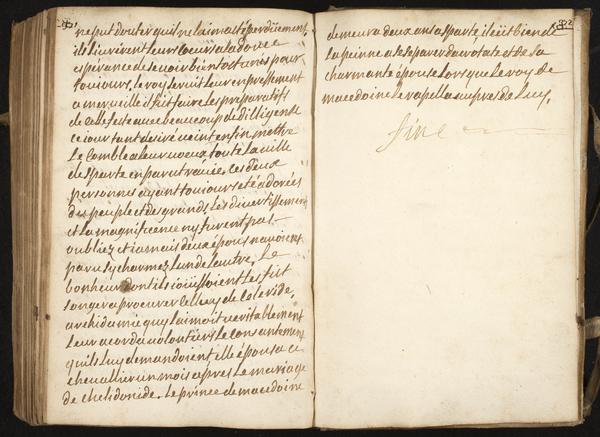 ne put douter quil ne laimast éperduement
ils livrirent leurs coeurs a la douce
espérance de se voir bientost unis pour
toujours, le roy le vit leur enpressement
a merveille il fit faire les preparatifs
de cette feste avec beaucoup de dilligense
ce jour tant desiré vient enfin mettre
le comble a leur voeux toute la ville
de sparte en parut ravie, ces deux
personnes ayant toujours eté adorées
des peuple et des grands, les divertissement
et la magnificence ny furent pas
oubliez et iamais deux épous navoient
paru sy charmez lun de lautre, Le
bonheur dont ils iouissoient les fist
songer a procurer celluy de
archidamie quy laimoit veritablement
leur acorda volontiers le consantement
quils luy demandoient elle épousa ce
chevallier un mois apres le mariage
de chelidonide, le prince de macedoine
demeura deux ans a sparte il eüt bien de
la peinne a se separer da et de sa
charmante épouse lors que le roy de
macedoine le rapella aupres de luy,
fine